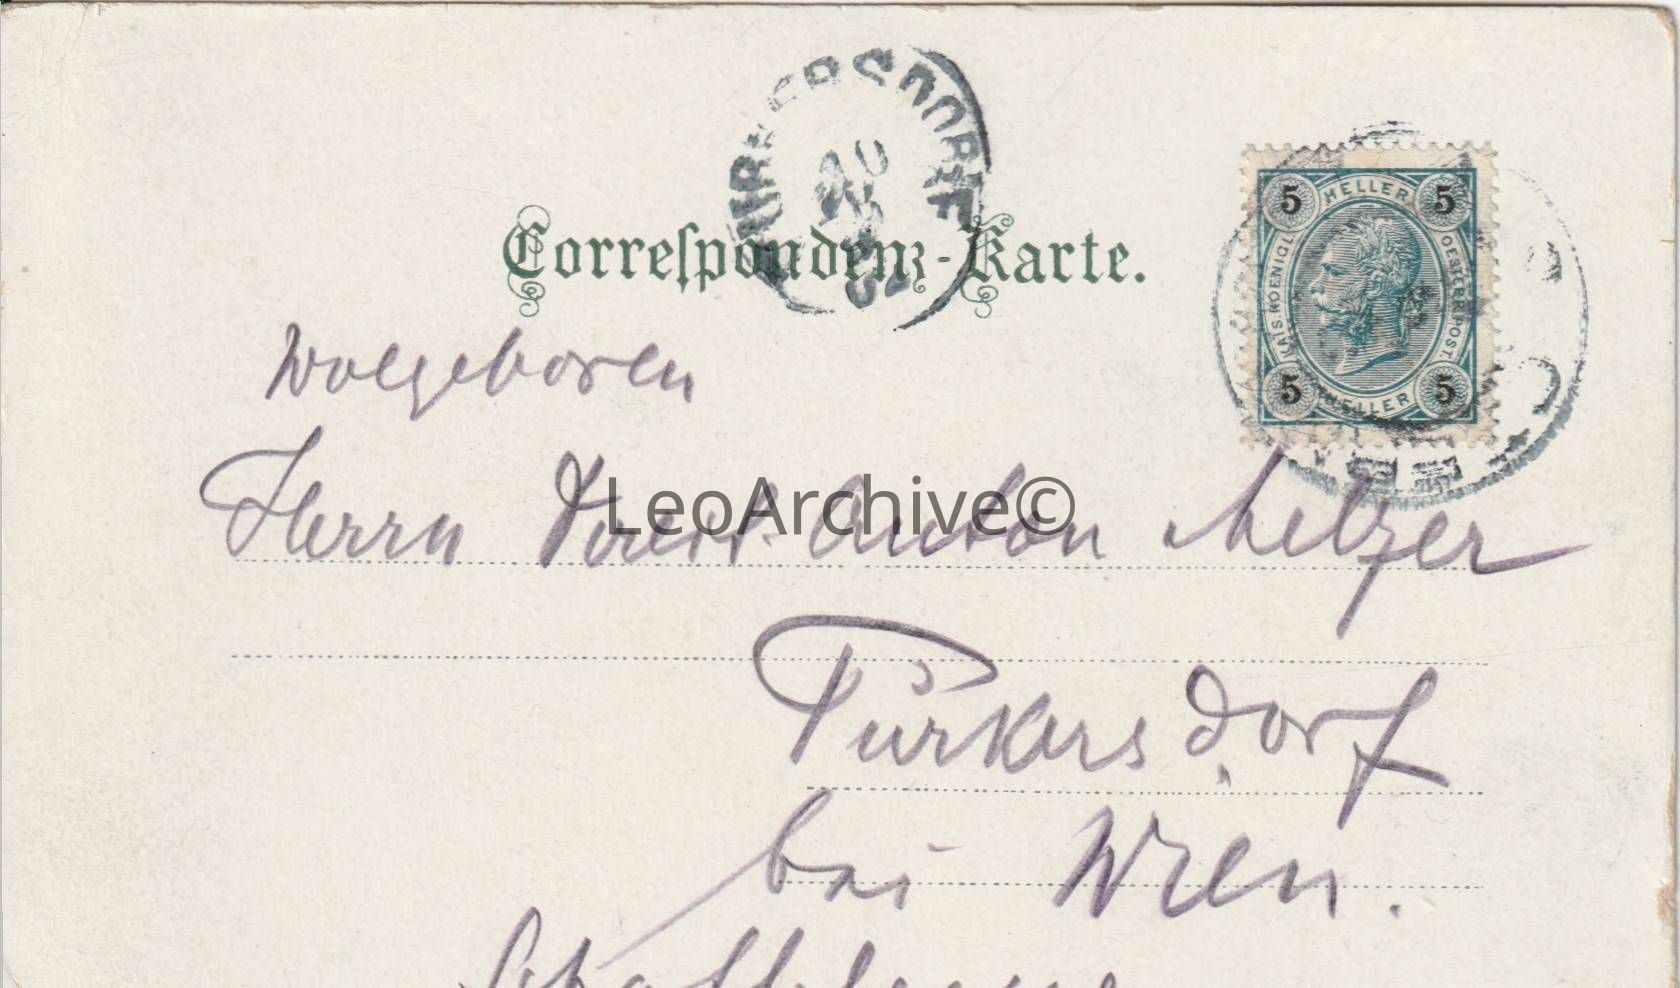 Correspondenz-Karte.
5 HELLER 5
KAIS. KOENIGL. OESTERR. POST.
5 HELLER 5
Wolgeboren
Herrn Anton Melzer
LeoArchive©
Purkersdorf
bei Wien.